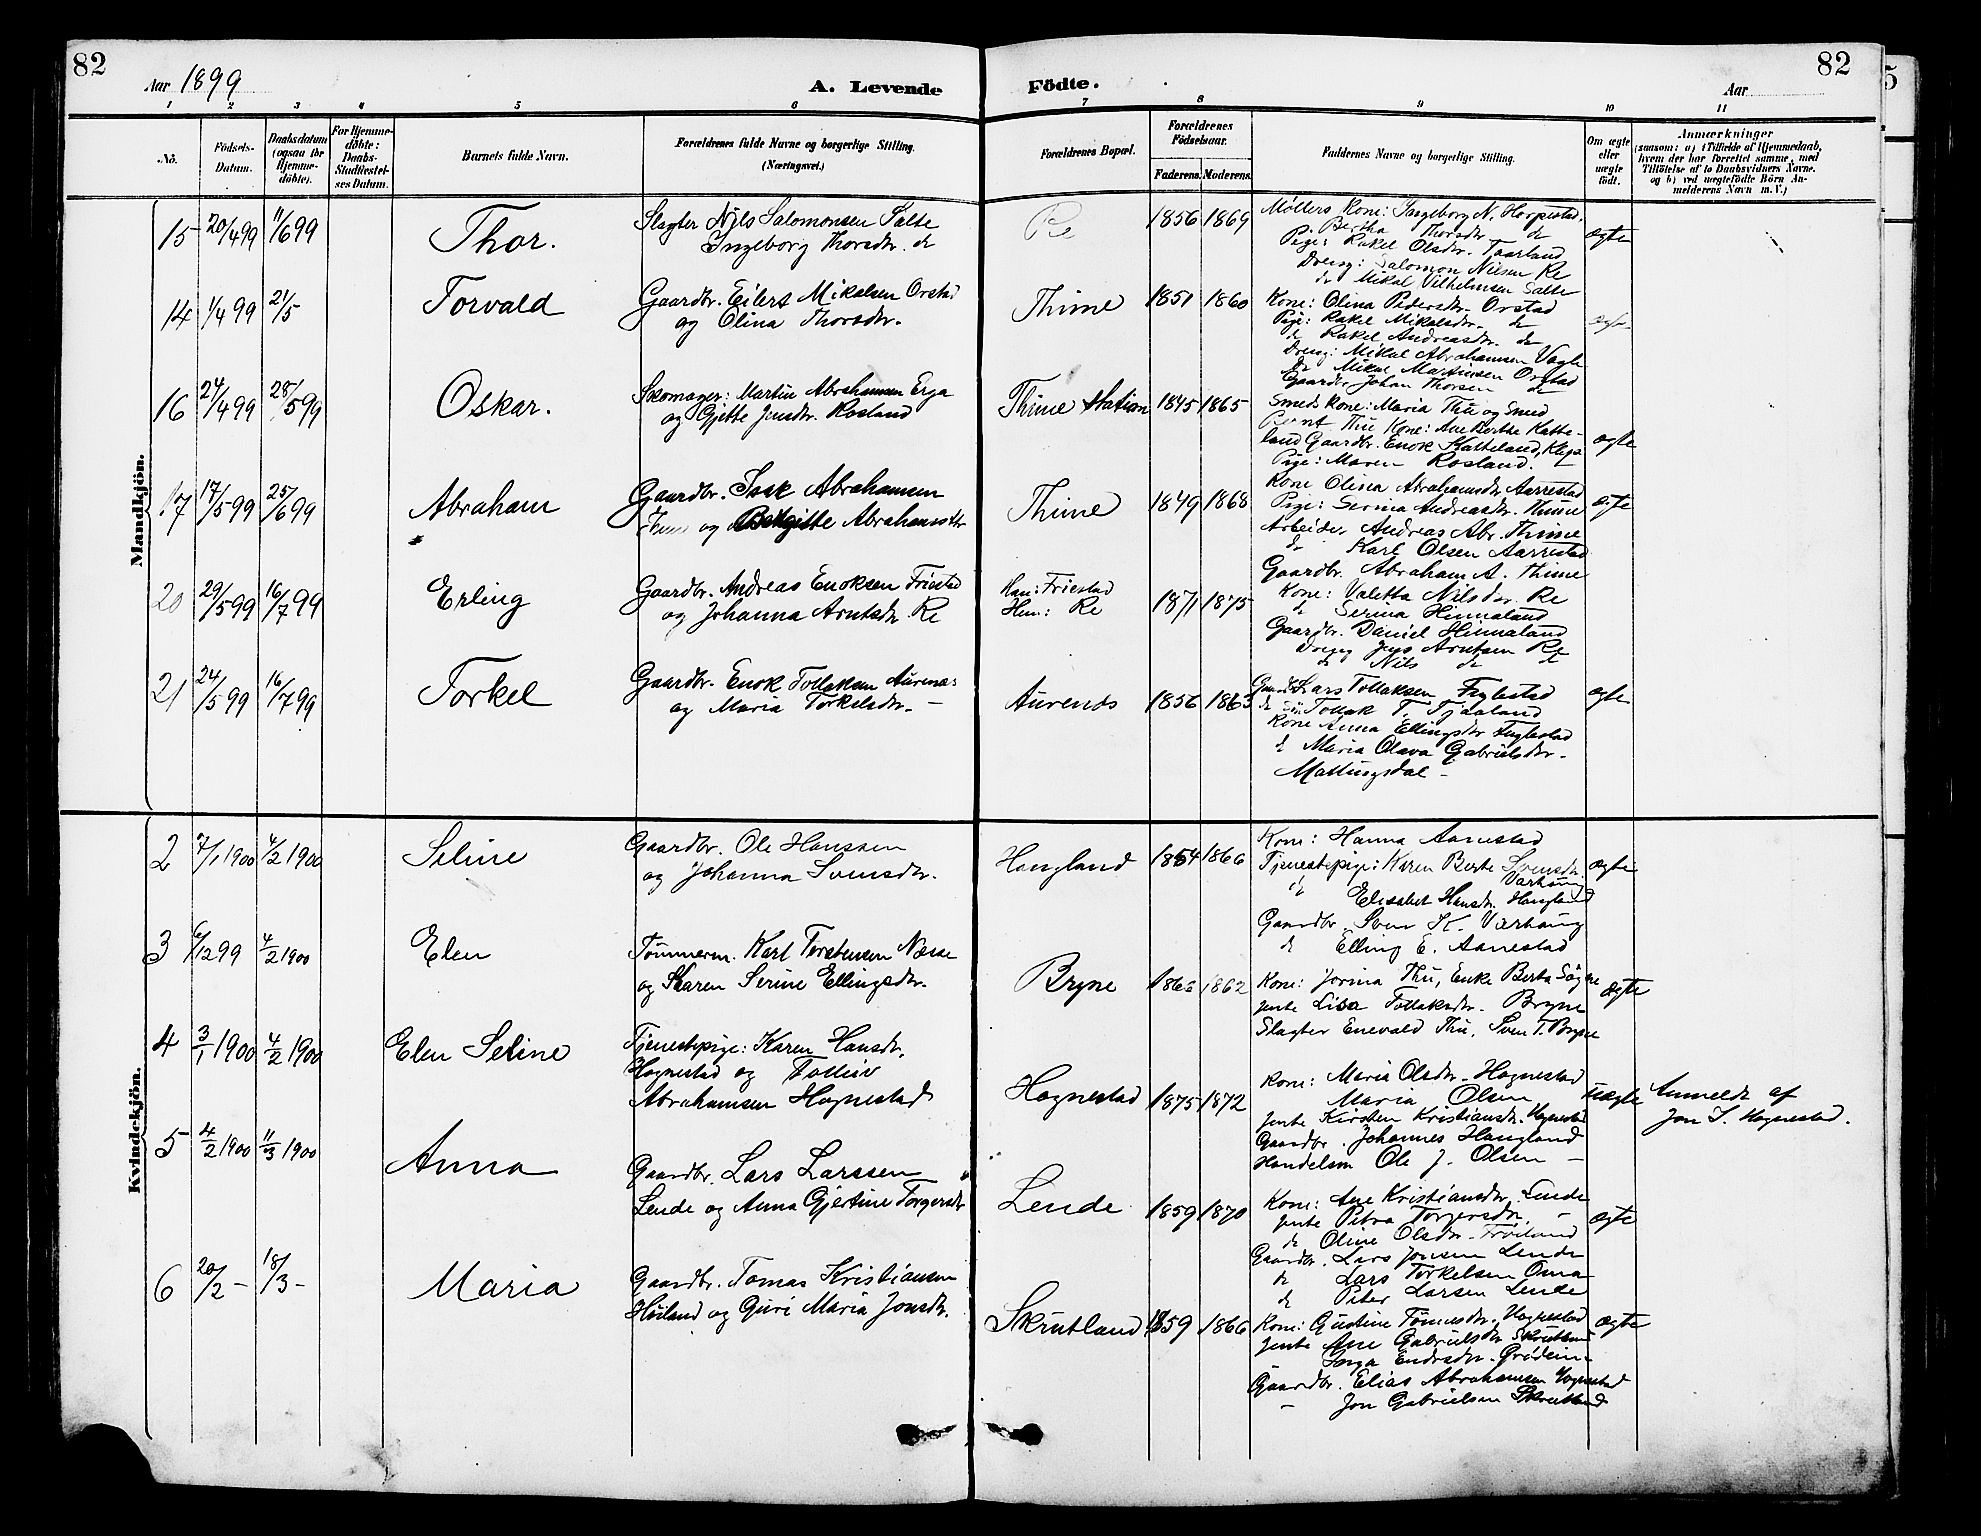 82
82
Aar 1899
A. Levende
Födte.
Aar
1 2 3 4 5 6 7 8 9 10 11
No.
Födsels-Datum.
Daabsdatum (ogsaa for Hjemme-döbte).
For Hjemme-döbte: Daabs-Stadfæstel-ses Datum.
Barnets fulde Navn.
Forældrenes fulde Navne og borgerlige Stilling.
(Næringsvei.)
Forældrenes Bopæl.
Forældrenes Födselsaar.
Faderens. Moderens.
Faddernes Navne og borgerlige Stilling.
Om ægte eller uægte födt.
Anmærkninger
(saasom: a) i Tilfælde af Hjemmedaab,
hvem der har forrettet samme, med
Tilföielse af to Daabsvidners Navne.
og b) ved uægtefödte Börn An-
melderens Navn m. V.)
Mandkjön.
15 20/4 99 11/6 99 Thor.
Slagter Nils Salomonsen Salte
Ingeborg Thorsdtr. do
Re 1856 1869
Møllers Kone: Ingeborg N. Horpestad.
P. Bertha Thorsdtr do
Pige: Rakel Olsdtr. Taarland
Dreng: Salomon Nilsen Re
do Mikal Vilhelmsen Salte
ægte
14 1/4 99 21/5 Torvald
Gaardbr. Eilert Mikalsen Orstad
og Olina Thorsdtr.
Thime 1851 1860
Kone: Olina Pedersdtr. Orstad
Pige: Rakel Mikalsdtr. do
do Rakel Andreasdtr. do
Dreng: Mikal Abrahamsen Vagle
do Mikal Martinsen Orstad
Gaardbr. Johan Thorsen do
16 24/4 99 28/5 99 Oskar.
Skomager: Martin Abrahamsen Erga
og Gjette Jensdtr. Rosland
Thime Station 1845 1865
Smeds Kone: Maria Thu og Smed
Bernt Thu Kone: Ane Berthe Katte-
land Gaardbr. Enok Katteland, Klep
Pige: Maren Rosland.
ægte
17 17/5 99 25/6 99 Abraham
Gaardbr. Isak Abrahamsen
Thime og Birgitte Abrahamsdtr
Thime 1849 1868
Kone Olina Abrahamsdtr Aarrestad
Pige: Serina Andreasdtr. Thime
Arbeider Andreas Abr. Thime
do Karl Olsen Aarrestad
Gaardbr. Abraham A. Thime
ægte
20 29/5 99 16/7 99 Erling
Gaardbr. Andreas Enoksen Friestad
og Johanna Arntsdtr. Re
Han: Friestad
Hun: Re
1871 1875
Kone: Valetta Nilsdtr. Re
do Serina Hinnaland
Gaardbr. Daniel Hinnaland
Dreng Jens Arntsen Re
do Nils do do
21 24/5 99 16/7 99 Torkel
Gaardbr. Enok Tollaksen Aurenes
og Maria Torkelsdtr. –
Aurends 1856 1863
Gaardbr Lars Tollaksen Fuglestad
do Søn Tollak T. Tjaaland
Kone Anna Ellingsdtr Fuglestad
do Maria Olava Gabrielsdtr.
Mattingsdal –
ægte
Kvindekjön.
2 7/1 1900 4/2 1900 Seline
Gaardbr. Ole Hanssen
og Johanna Svensdtr.
Haugland 1854 1866
Kone: Hanna Aanestad
Tjenestepige: Karen Berte Svensdtr.
Varhaug
do Elisabet Hansdtr. Haugland
Gaardbr Sven K. Varhaug
do Elling E. Aanestad
ægte
3 6/12 99 4/2 1900 Elen
Tømmerm. Karl Torstensen Næsse
og Karen Serine Ellingsdtr.
Bryne 1862
Kone: Jorina Thu, Enke Berta
Jente Lisa Tollaksdtr. Bryne
Slagter Enevald Thu, Sven T. Bryne
ægte
4 3/1 1900 4/2 1900 Elen Seline
Tjenestepige: Karen Hansdtr.
Hognestad og Tolleiv
Abrahamsen Hognestad
Hognestad 1875 1872
Kone: Maria Olsdtr. Hognestad
Maria Olsen
Jente Kirsten Kristiansdtr. Hognestad
Gaardbr. Johannes Haugland
Handelsm Ole J. Olsen –
uægte
Anmeldt af
Jon S. Hognestad.
5 4/2 1900 11/3 1900 Anna
Gaardbr. Lars Larssen
Lende og Anna Gjertine Torgersdtr
Lende 1859 1870
Kone: Ane Kristiansdtr. Lende
Jente Petra Torgersdtr. –
do Oline Olsdtr. Frøiland
Gaardbr. Lars Jonsen Lende
do Lars Torkelsen Oma
do Peter Larsen Lende
ægte
6 20/2 – 18/3 – Maria
Gaardbr. Tomas Kristiansen
Høiland og Guri Maria Jonsdtr.
Skrutland 1859 1866
Kone: Gustine Tønnesdtr. Hognestad
Jente Ane Gabrielsdtr Skrutland
Inga Endresdtr. Grødeim
Gaardbr. Elias Abrahamsen Hognestad
– Jon Gabrielsen Skrutland
ægte